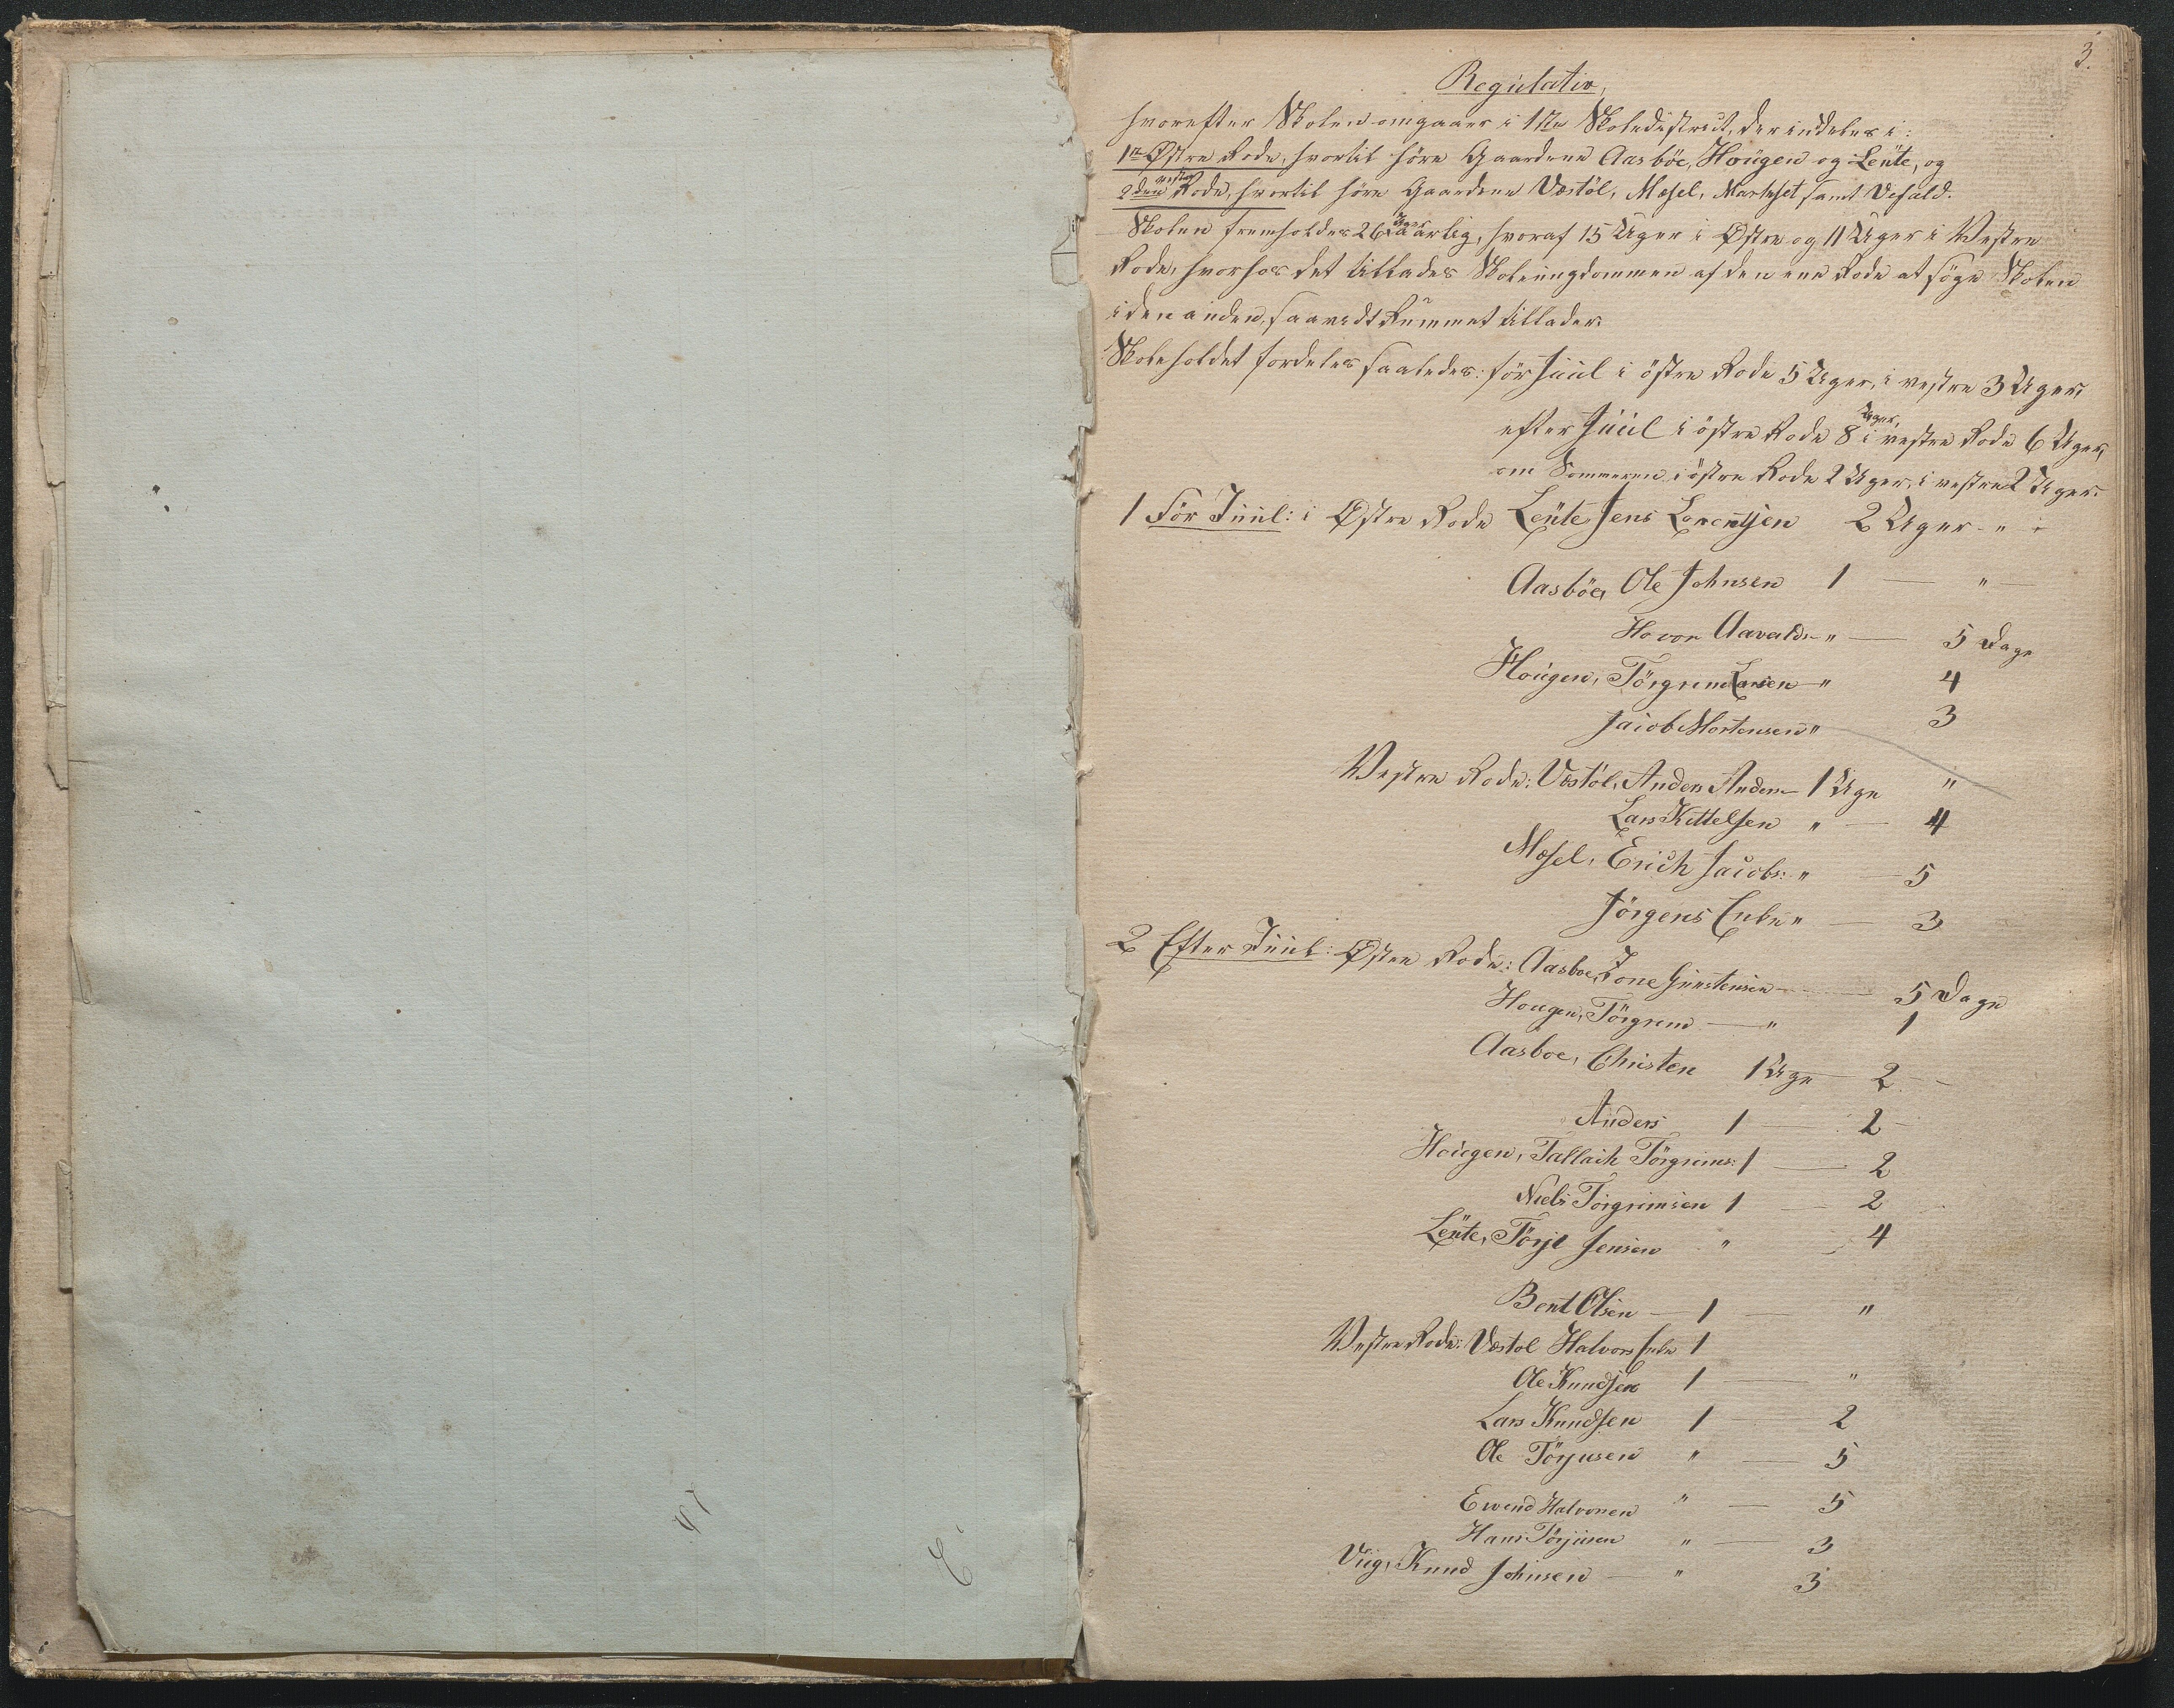 3.
Regulativ,
hvorefter Skolen omgaaer i 1ste Skoledistrict, der inddeles i:
1ste Østre Rode, hvortil höre Gaardene Aasböe, Hougen og Lente, og
2den vestre Rode, hvortil höre Gaardene Vestöl, Mosel, samt
Skolen fremholdes 26 Uger aarlig, hvoraf 15 Uger i Østre og 11 Uger i Vestre
Rode, hvorhos det tillades Skoleungdommen af den ene Rode at söge Skolen
i den anden, saavidt Rummet tillader.
Skoleholdet fordeles saaledes: för Juul i östre Rode 5 Uger, i vestre 3 Uger,
efter Juul i östre Rode 8 Uger, i vestre Rode 6 Uger,
om Sommeren i östre Rode 2 Uger, i vestre 2 Uger.
1 För Juul: i Østre Rode Lente Jens Lorentsen 2 Uger - "
Aasböe, Ole Johnsen 1 — " —
Hovor Aavalds " — 5 Dage
Hougen, Törgrim Larsen " 4
Jacob Mortensen " 3
Vestre Rode: Vestöl, Anders Anders 1 Uge "
Lars Kittelsen " — 4
Mosel, Erich Jacobs: " — 5
Jörgens Enke " — 3
2 Efter Juul: Østre Rode: Aasboe, Tone Gunstensen — 5 Dage
Hougen, Törgrim — " 1
Aasboe, Christen 1 Uge 2 —
Anders 1 — 2 -
Hougen, Tallach Törgrims: 1 — 2
Niels Törgrimsen 1 — 2
Lente, Törje Jensen " — 4
Bent Olsen — 1 — "
Vestre Rode: Vestöl Halvors Enke 1
Ole Knudsen 1 — "
Lars Knudsen 1 — 2
Ole Törjusen " — 5
Ewend Halvorsen " — 5
Hans Törjusen " — 3
Viig, Knud Johnsen — " 3